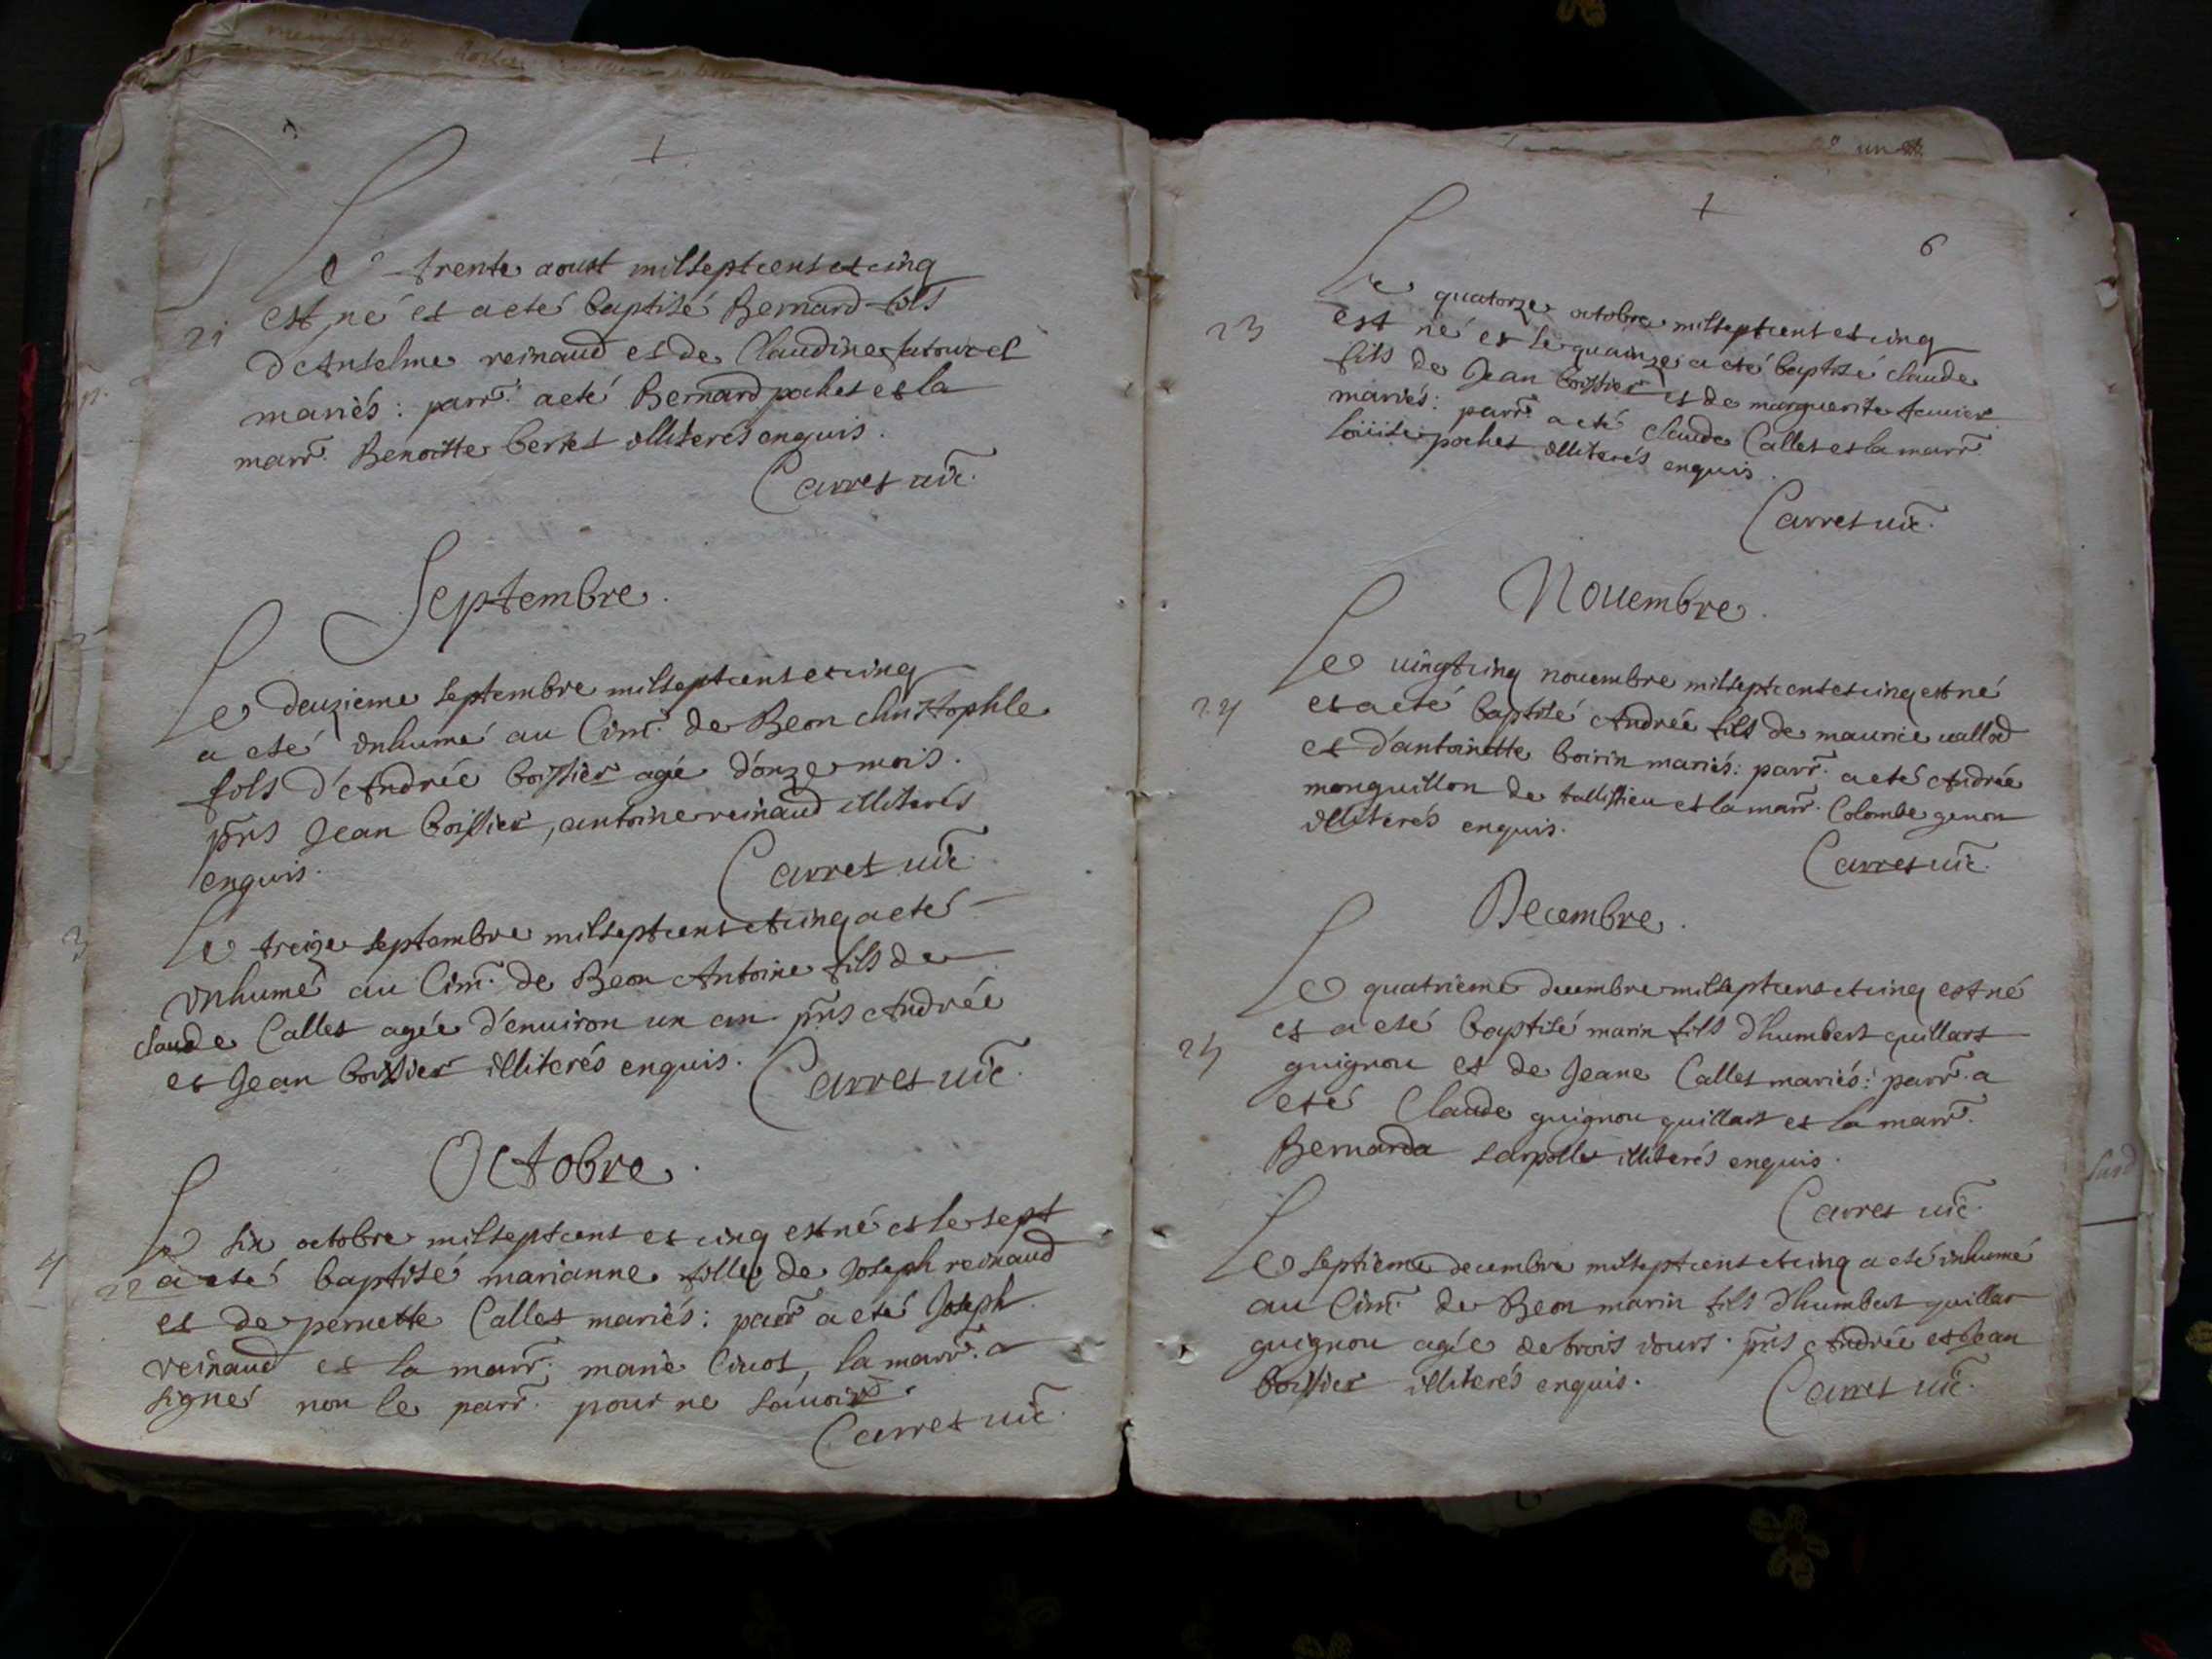 Le trente aoust mil sept cens et cinq
21 est né et a eté baptisé Bernard fils
d'Anselme reinaud et de Claudine
mariés: parr. a eté Bernard pochet et la
marr. Benoitte bertet illiterés enquis.
Carret vic.
Septembre.
Le deuzieme septembre mil sept cens et cinq
a eté inhumé au Cim. de Beon christophle
fils d'Andrée boissier agée d'onze mois.
pns Jean boissier, antoine reinaud illiterés
enquis.
Carret vic.
3 Le treize septembre mil sept cens et cinq a eté
inhumé au Cim. de Beon Antoine fils de
claude Callet agée d'enuiron un an pns Andrée
et Jean boissier illiterés enquis.
Carret vic.
Octobre.
Le six octobre mil sept cens et cinq est né et le sept
4 22 a eté baptisé marianne fille de Joseph reinaud
et de pernette Callet mariés: parr a eté Joseph
reinaud et la marr. marie la marr. a
signé non le parr. pour ne sauoir.
Carret vic.
6
Le quatorze octobre mil sept cens et cinq
23 est né et le quainze a eté baptisé claude
fils de Jean boissier et de marguerite
mariés: parr a eté claude Callet et la marr
loüise pochet illiterés enquis.
Carret vic.
Nouembre.
Le uingt cinq nouembre mil sept cens et cinq est né
24 et a eté baptisé Andrée fils de maurice uallod
et d'antoinette boirin mariés: parr. a eté Andrée
monguillon de tallissieu et la marr. Colombe genon
illiterés enquis.
Carret vic.
Decembre.
Le quatrieme decembre mil sept cens et cinq est né
25 et a eté baptisé marin fils d'humbert quillart
guignon et de Jeane Callet mariés: parr. a
eté Claude guignon quillart et la marr.
Bernarda illiterés enquis.
Carret vic.
Le septieme decembre mil sept cens et cinq a eté inhumé
au Cim. de Beon marin fils d'humbert quillar
guignon agée de trois iours. pns Andrée et Jean
boissier illiterés enquis.
Carret vic.